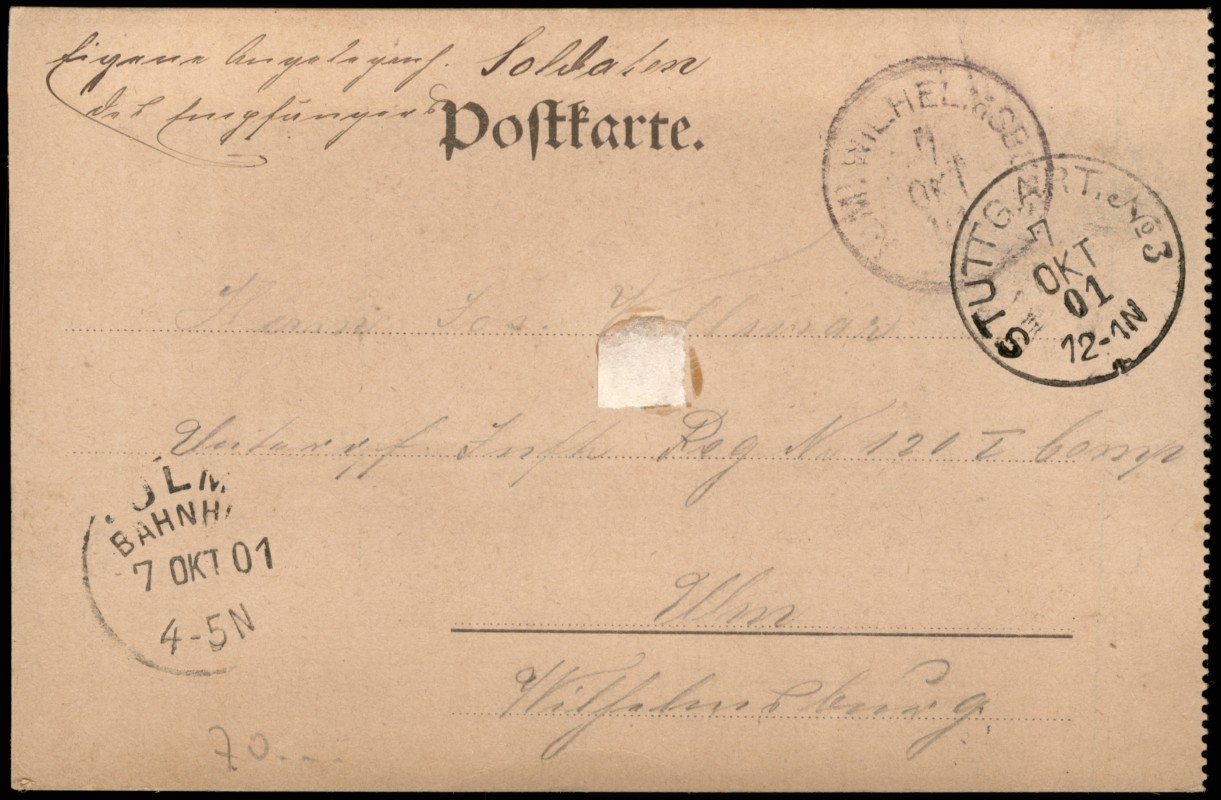 Eigene Angelegenh. Soldaten
des Empfängers
Postkarte.
WILHELMSB
7
OKT
STUTTGART. No 3
7
OKT
01
12-1N
Herrn Jos. Vollmar
Unteroff. Inft. Reg No 120 I Comp
ULM
BAHNH
7 OKT 01
4-5N
Ulm
Wilhelmsburg
70.---